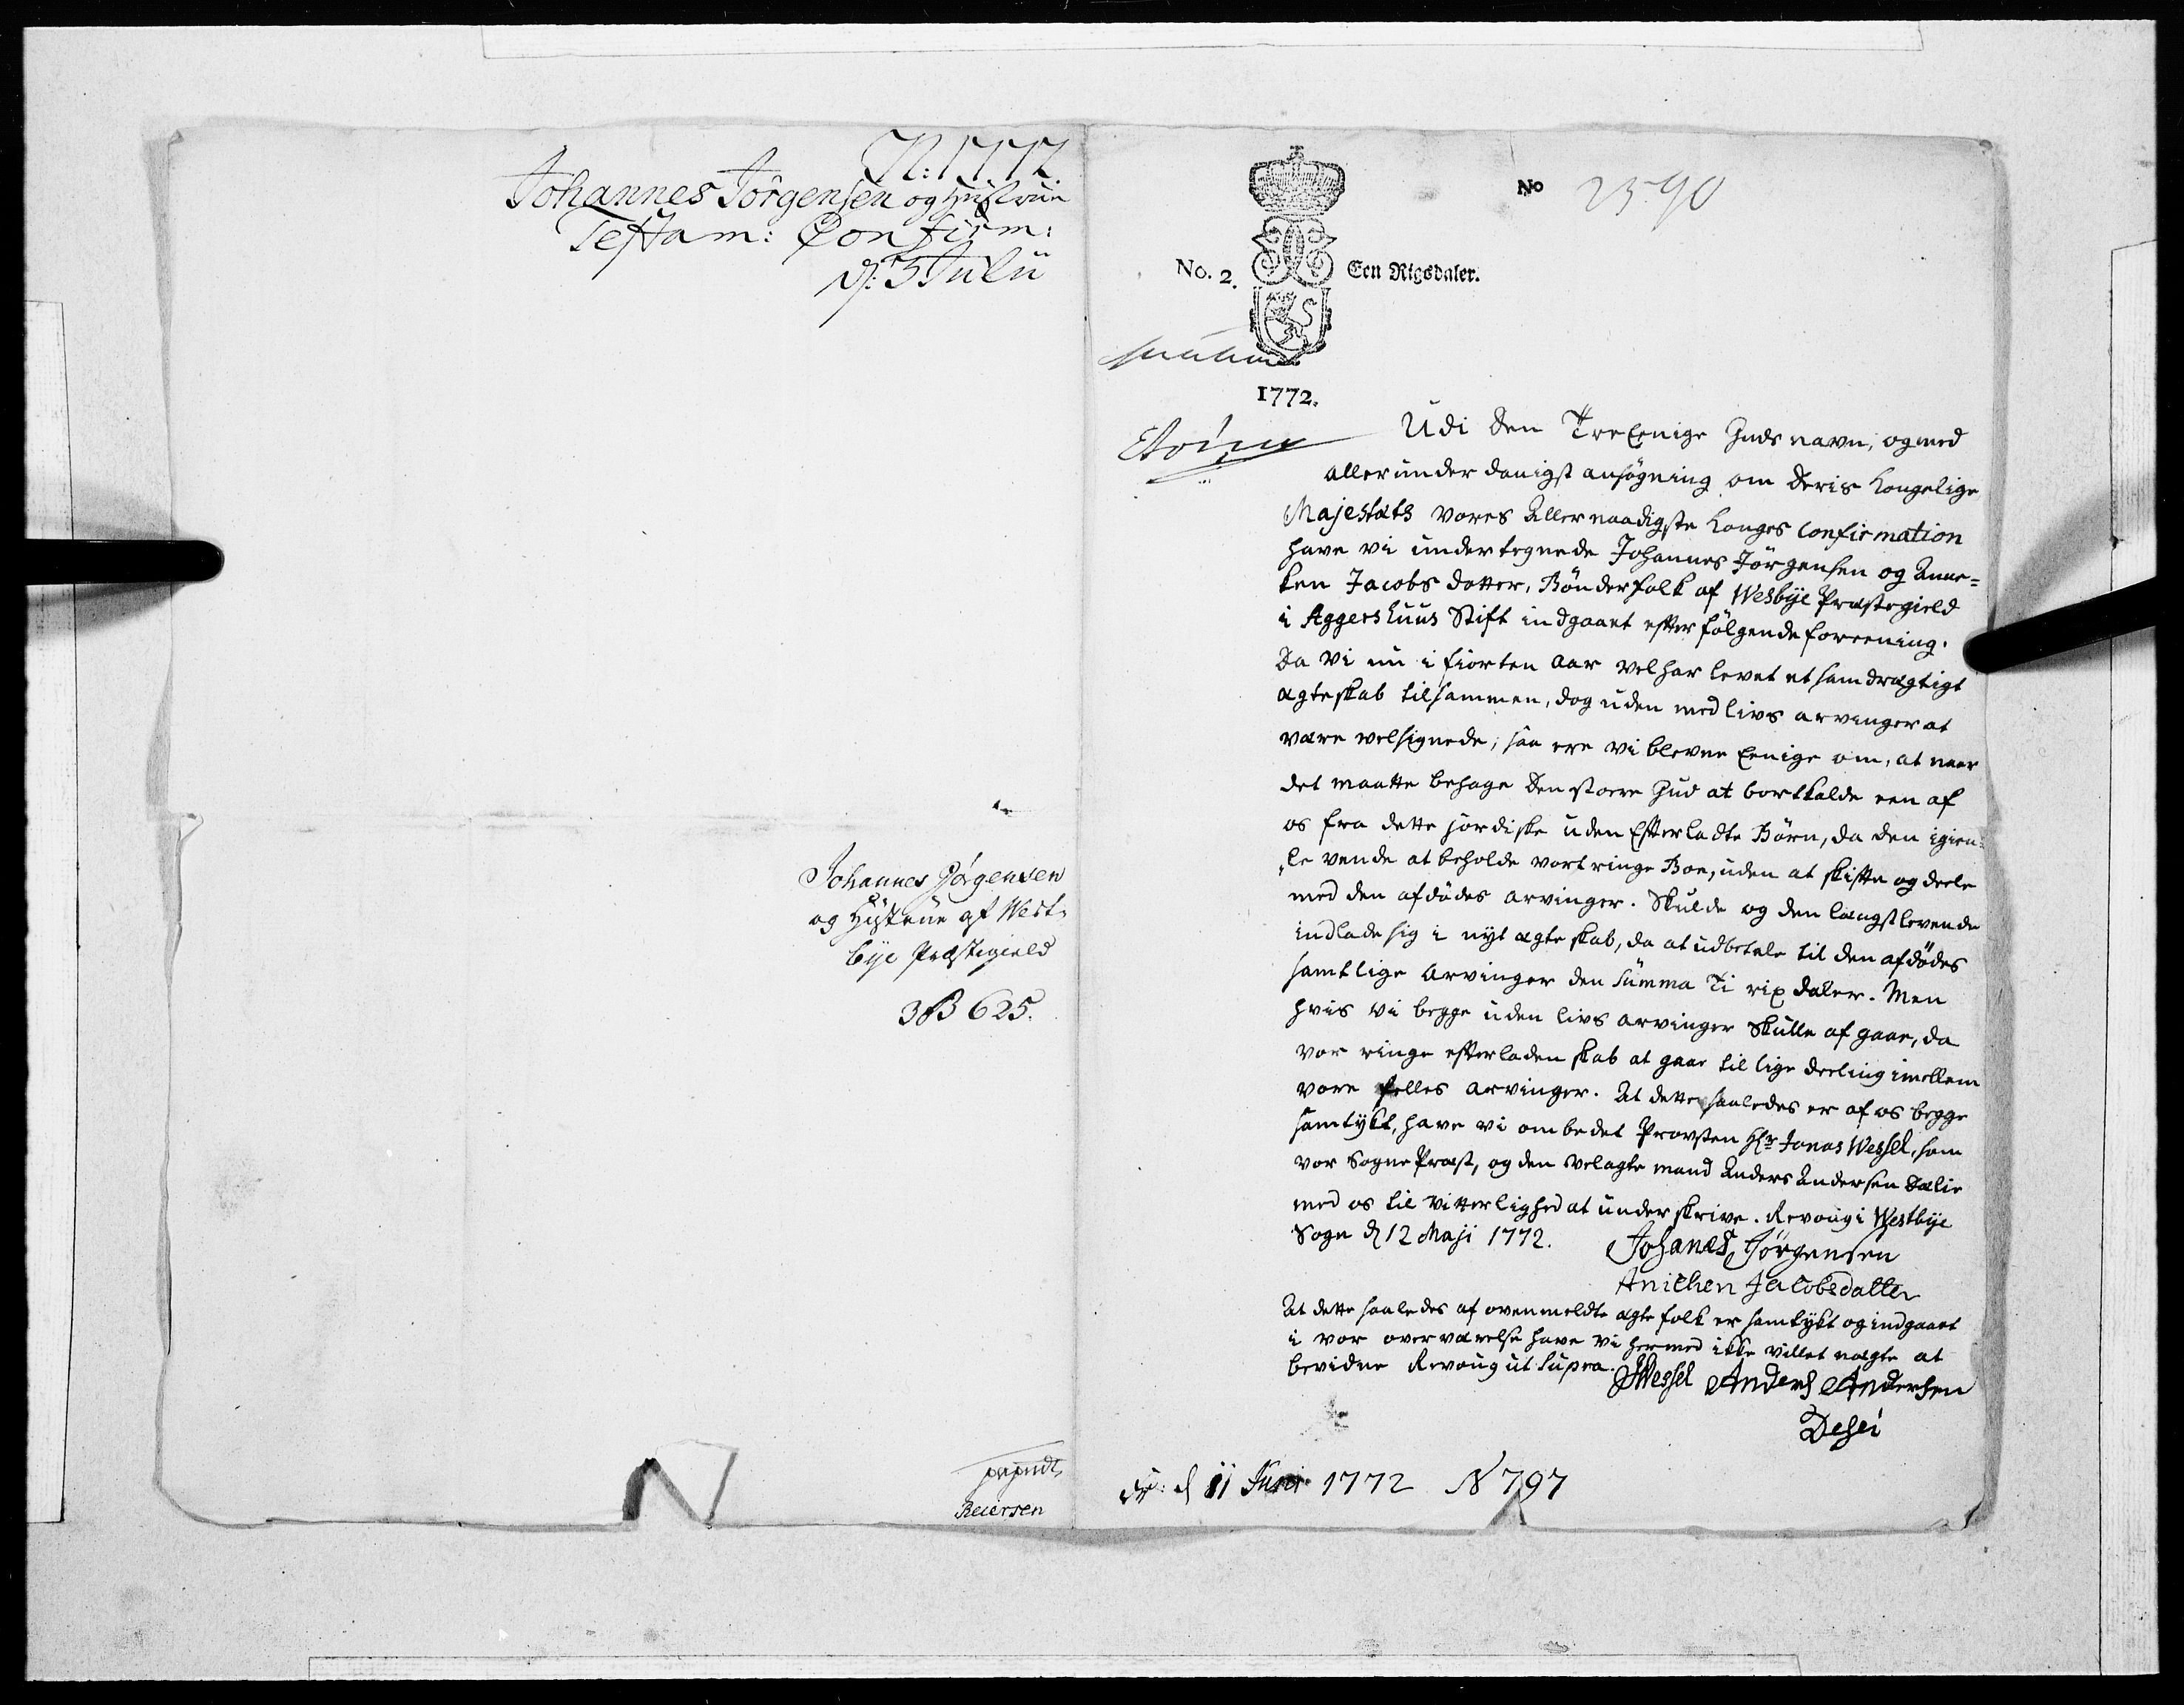 N: 1772.
Johannes Jörgensen og Hustrue
Testam: Confirm:
d: 3 Julii
Johannes Jörgensen
og Hustrue af West-
bye Præstegield
3 B 625.
Reiersen
No 2590
No. 2. Een Rigsdaler.
1772.
Udi den TreEenige Guds navn, og med
allerunderdanigst ansøgning om Deris Kongelige
Majestæts vores Allernaadigste Konges Confirmation
have vi undertegnede Johannes Jörgensen og Anne-
ken Jacobs datter, Bönderfolk af Wesbye Præstegield
i Aggershuus Stift indgaaet efterfölgende foreening.
Da vi nu i fiorten aar vel har levet et samdrægtigt
ægteskab tilsammen, dog uden med livs arvinger at
være velsignede; saa ere vi blevne Eenige om, at naar
det maatte behage den store Gud at bortkalde een af
os fra dette jordiske uden Efterladte Börn, da den igien-
levende at beholde vort ringe Boe, uden at skifte og deele
med den afdödes arvinger. Skulde og den længstlevende
indlade sig i nyt ægteskab, da at udbetale til den afdödes
samtlige arvinger den Summa Ti rixdaler. Men
hvis vi begge uden livs arvinger Skulle afgaae, da
vor ringe efterladenskab at gaae til lige deeling imellem
vore felles arvinger. At dette saaledes er af os begge
samtykt, have vi ombedet Provsten Hr Jonas Wessel, som
vor Sogne Præst, og den velagte mand Anders Andersen Dælie
med os til vitterlighed at underskrive. Revoug i Westbye
Sogn d 12 Maji 1772.
Johanes Jörgensen
Anichen Jacobsdatter
At dette saaledes af ovenmeldte ægtefolk er samtykt og indgaaet
i vor overværelse have vi hermed ikke villet nægte at
bevidne Revoug ut supra.
JWessel Anders Andersen
Dehei
d 11 Juni 1772 N 797